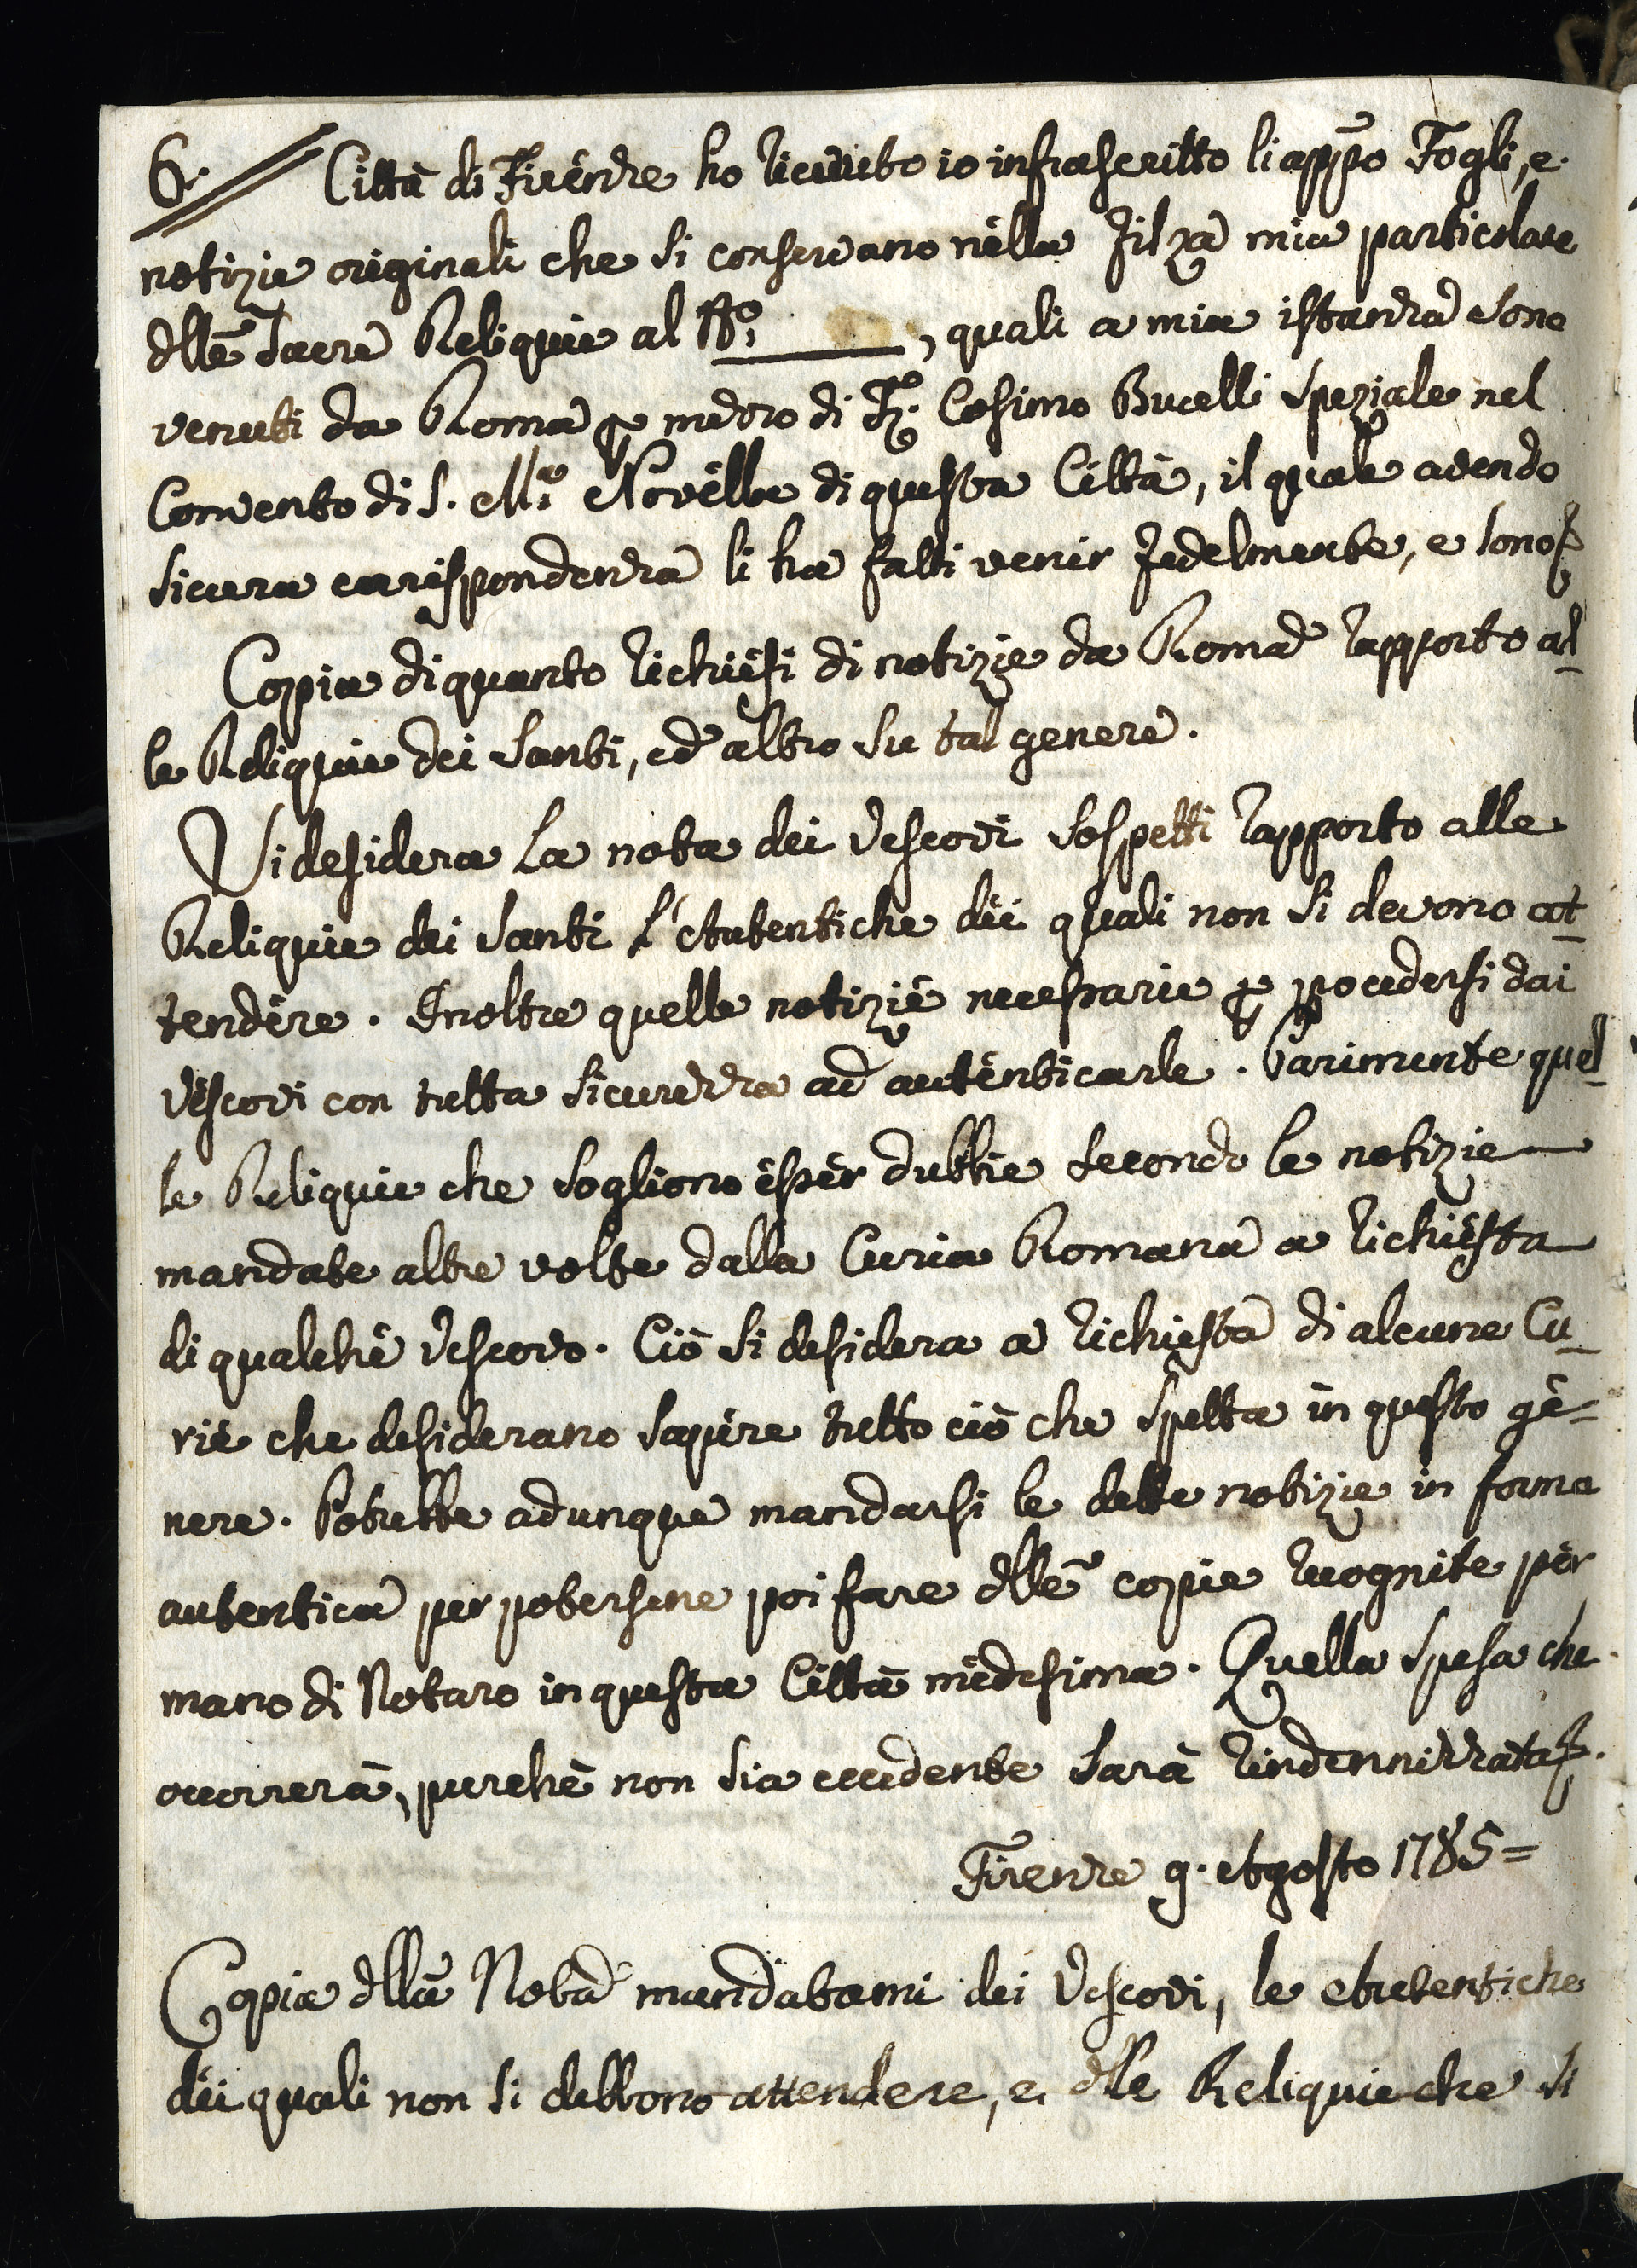 6. Città di Firenze ho ricevuto io infrascritto li appõ Fogli, e
notizie originali che si conservano nella Filza mia particolare
dllẽ Sacre Reliquie al No: ______, quali a mia istanza sono
venuti da Roma p mezzo di Fr: Cosimo Bucelli Speziale nel
Convento di S. Ma: Novella di questa Città, il quale avendo
sicura corrispondenza li ha fatti venir fedelmente, e sono
Copia di quanto richiesi di notizie da Roma rapporto al-
le Reliquie dei Santi, ed altro su tal genere.
Si desidera La nota dei Vescovi sospetti rapporto alle
Reliquie dei Santi L'Autentiche dei quali non si devono at-
tendere. Inoltre quelle notizie necessarie p procedersi dai
Vescovi con tutta sicurezza ad autenticarle. Parimente quel-
le Reliquie che sogliono esser dubbie secondo le notizie
mandate altre volte dalla Curia Romana a richiesta
di qualche Vescovo. Ciò si desidera a richiesta di alcune Cu-
rie che desiderano sapere tutto ciò che spetta in questo ge-
nere. Potrebbe adunque mandarsi le dette notizie in forma
autentica per potersene poi fare dllẽ copie recognite per
mano di Notaro in questa Città medesima. Quella spesa che
occorrerà, purchè non sia eccedente sarà rindennizzata.
Firenze 9. Agosto 1785=
Copia dllã Nota mandatami dei Vescovi, le Autentiche
dei quali non si debbono attendere, e dlle Reliquie che si